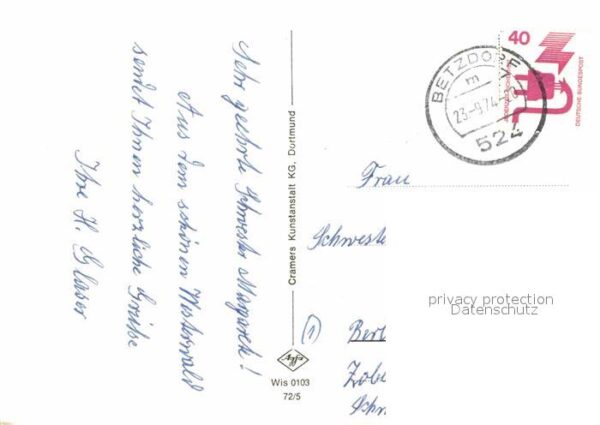 Sehr geehrte Schwester Margaret!
Aus dem schönen Westerwald
sendet Ihnen herzliche Grüße
Ihre H. Glaser
Cramers Kunstanstalt KG, Dortmund
Wis 0103
72/5
40
DEUTSCHE BUNDESPOST
BETZDORF
m
23.-9.74
524
Frau
Schweste
1
Berl
Zobe
Schn
privacy protection
Datenschutz